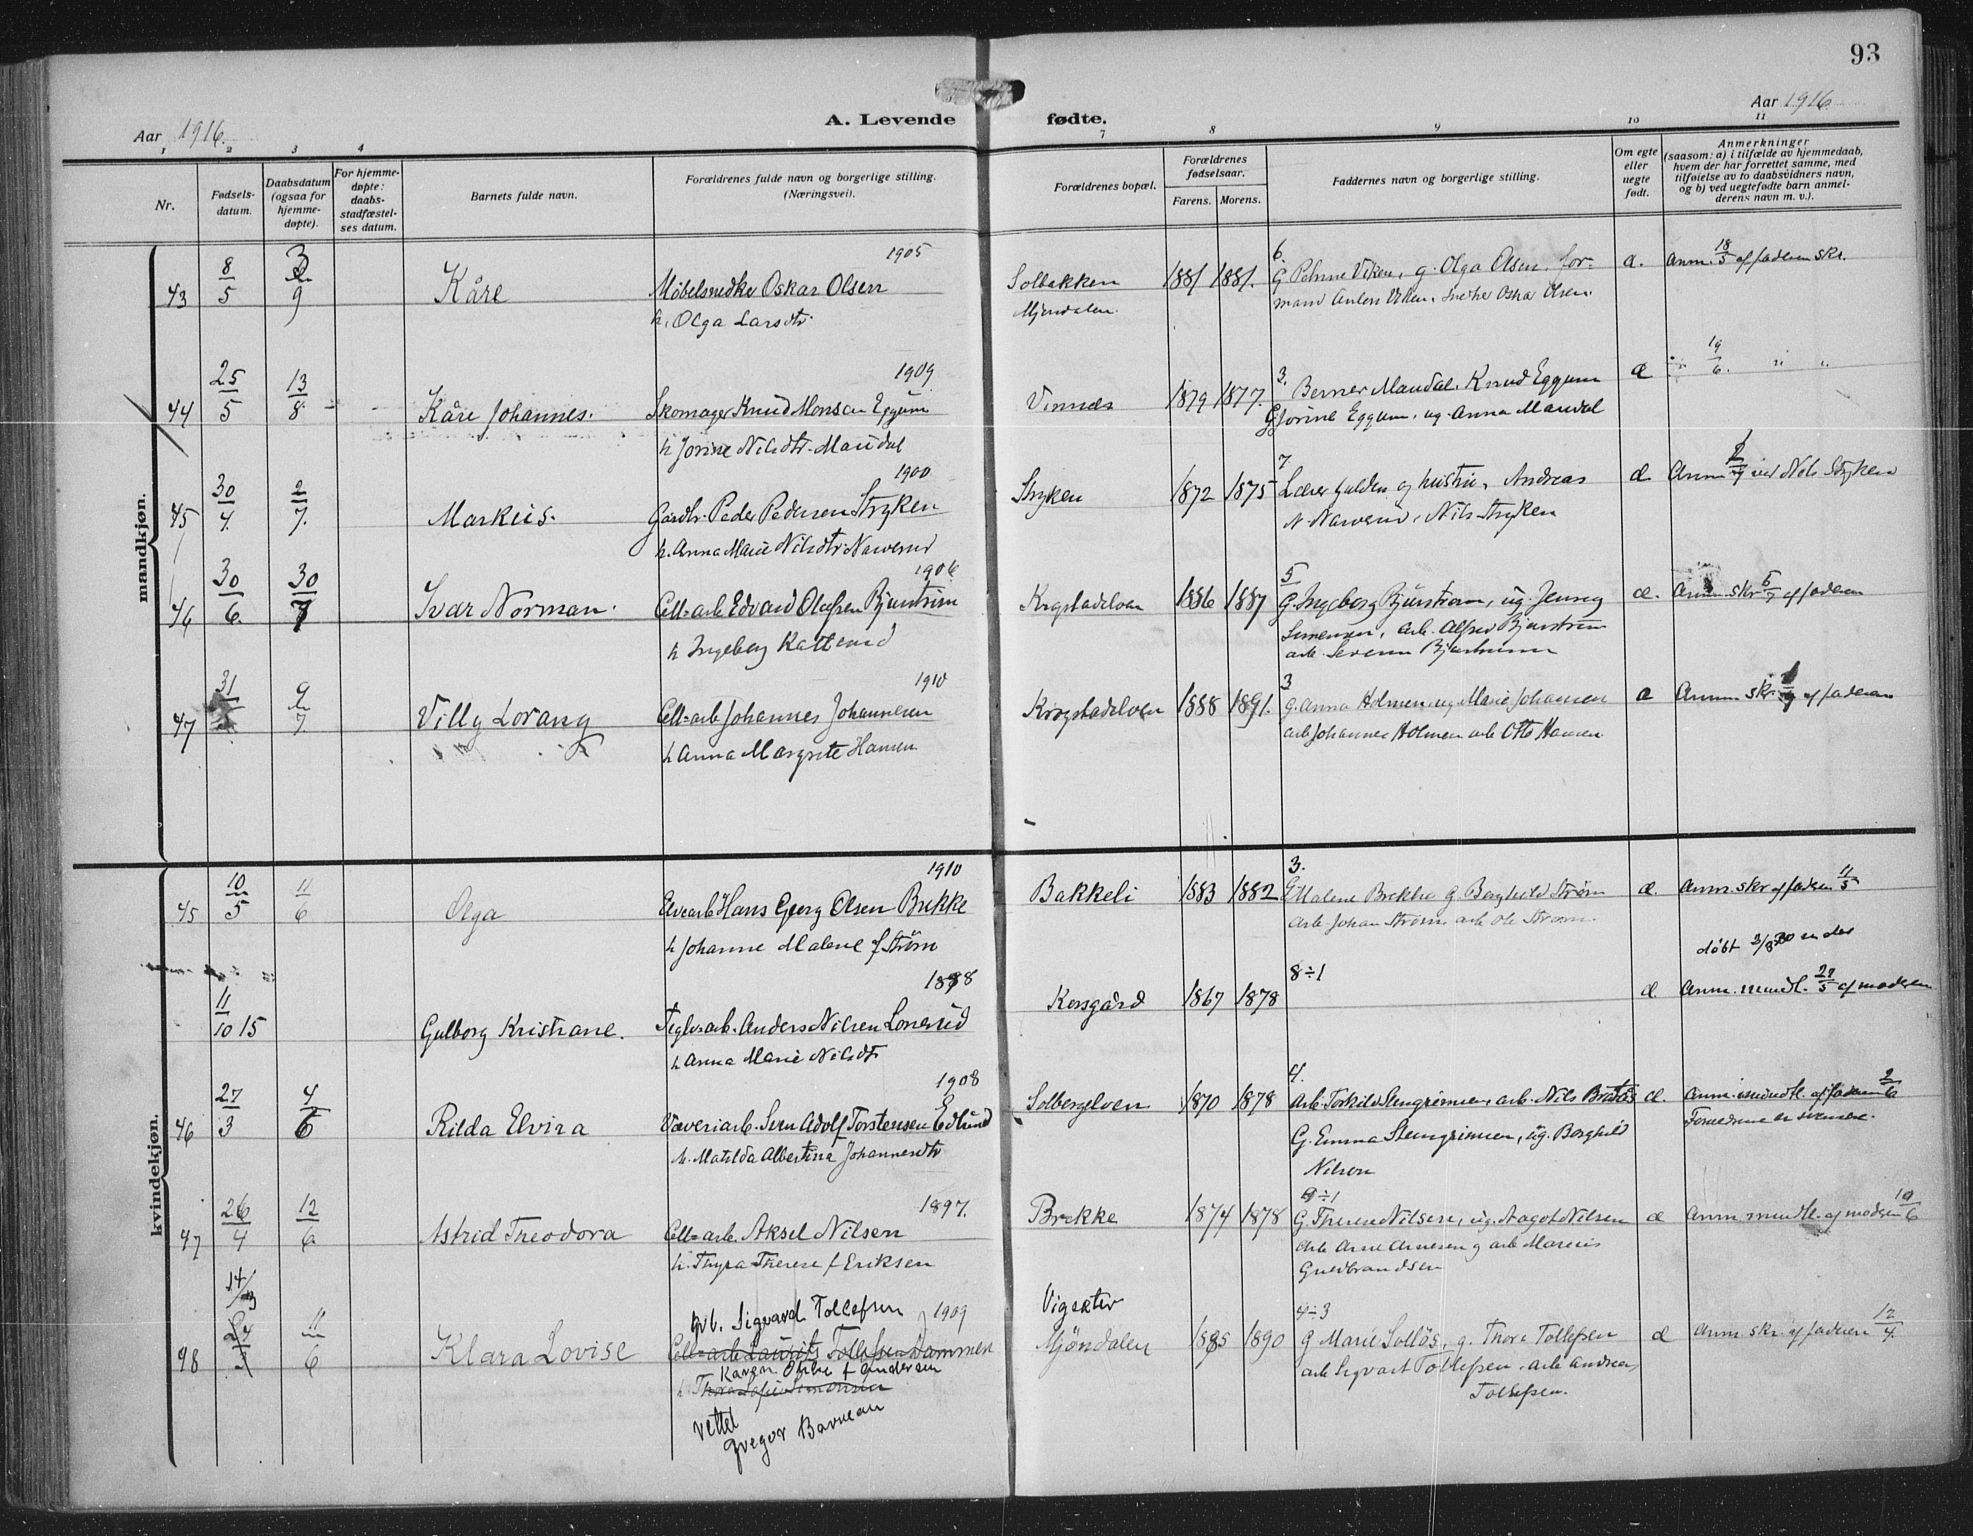 93
Aar 1916.
A. Levende fødte.
Aar 1916.
1 2 3 4 7 8 9 10 11
Nr.
Fødsels-
datum.
Daabsdatum
(ogsaa for
hjemme-
døpte).
For hjemme-
døpte:
daabs-
stadfæstel-
ses datum.
Barnets fulde navn.
Forældrenes fulde navn og borgerlige stilling.
(Næringsvei).
Forældrenes bopæl.
Forældrenes
fødselsaar.
Farens. Morens.
Faddernes navn og borgerlige stilling.
Om egte
eller
uegte
født.
Anmerkninger
(saasom: a) i tilfælde av hjemmedaab,
hvem der har forrettet samme, med
tilføielse av to daabsvidners navn,
og b) ved uegtefødte barn anmel-
derens navn m. v.).
mandkjøn.
1905
43 8/5 3/9 Kåre Møbelsnedker Oskar Olsen
h. Olga Larsdtr.
Solbakken
Mjøndalen.
1881 1881.
6
G Petrine Viken, g. Olga Olsen, for-
mand Anders Viken, Snedker Oskar Olsen.
æ. Anm. 18/5 af faderen skr.
1909
44 25/5 13/8 Kåre Johannes. Skomager Knud Monsen Eggum
h Jorine Nilsdtr. Maudal
Vinnes 1879 1877.
3.
Berner Maudal, Knud Eggum
G Jorine Eggum, ug. Anna Maudal
æ " 19/6. " "
1900
45 30/4. 2/7. Markus. Gårdbr. Peder Pedersen Stryken
h. Anna Marie Nilsdtr. Narverud
Stryken 1872 1875
7
Lærer Gulden og hustru, Andreas
N. Narverud, Nils Stryken
æ Anm ved Nils Stryken
1906
46 30/6. 30/7 Ivar Norman. Cell=arb Edvard Olafsen Bjurstrøm
h Ingeborg Katterud
Krogstadelven 1886 1887
5
G. Ingeborg Bjurstrøm, ug. Jenny
Simensen, arb. Alfred Bjurstrøm
arb. Severin Bjurstrøm
æ. Anm. skr 5/7 af faderen
1910
47 31 9/7. Villy Lorang Cell=arb Johannes Johannesen
h Anna Margrete Hansen
Krogstadelven 1888 1891.
3
g. Anna Holmen, ug Marie Johansen
arb Johannes Holmen arb Otto Hansen
æ Anm. skr. af faderen
kvindekjøn.
1910
45 10/5 11/6 Olga Elvearb Hans Georg Olsen Brekke
h Johanne Malene f. Strøm
Bakkeli 1883 1882
3.
G Malene Brekke G Borghild Strøm
arb Johan Strøm arb Ole Strøm.
æ. Anm. skr af faderen 11/5
døbt 3/8 30
1898
11/10 15 Gulborg Kristiane. Teglv=arb. Anders Nilsen Lonerud
h Anna Marie Nilsdtr
Korsgård 1867 1878
8÷1
æ Anm. mundtl. 27/5 af moderen
1908
46 27/3 4/6 Rilda Elvira Væveriarb. Sven Adolf Torstensen Edlund
h. Matilda Albertina Johannesdtr
Solbergelven 1870 1878
4.
Arb. Torkild Stengrimsen, arb. Nils Bråtås
G. Emma Stengrimsen, ug. Borghild
Nilsen
æ. Anm. mundtl. af faderen 2/6
Forældrene er svenske.
1897.
47 26/4 12/6 Astrid Theodora Cell=arb. Aksel Nilsen
h. Thyra Therese f Eriksen
Brekke 1874 1878
9÷1
G. Therese Nilsen, ug. Aagot Nilsen
Arb Arne Arnesen g arb Marius
Guldbrandsen
æ Anm mundtl. af moderen 19/6
14/3
arb. Sigvard Tollefsen 1909
98 11/6 Klara Lovise Cell=arb Laurits Tollefsen Dammen
Karen Otilie f Andersen
h. Thora Sofie Simonsen
vettel
Gregor Bavnean
Vigseter
Mjøndalen 1885 1890
4÷3
G Marie Solløs, g. Thora Tollefsen
arb Sigvart Tollefsen, arb Andreas
Tollefsen.
æ Anm skr. af faderen 12/4.